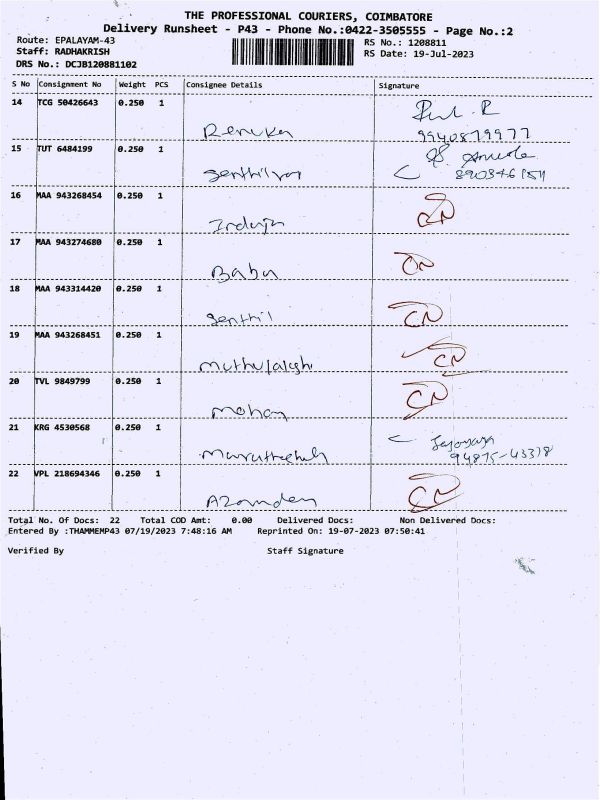 THE PROFESSIONAL COURIERS, COIMBATORE
Delivery Runsheet - P43 - Phone No.:0422-3505555 - Page No.:2
Route: EPALAYAM-43 RS No.: 1208811
Staff: RADHAKRISH RS Date: 19-Jul-2023
DRS No.: DCJB120881102
S No Consignment No Weight PCS Consignee Details Signature
14 TCG 50426643 0.250 1 Renuka
9940879977
15 TUT 6484199 0.250 1
16 MAA 943268454 0.250 1 Induja CN
17 MAA 943274680 0.250 1 Babu CN
18 MAA 943314420 0.250 1 Senthil CN
19 MAA 943268451 0.250 1 CN
20 TVL 9849799 0.250 1 Mohan CN
21 KRG 4530568 0.250 1
94875-43378
22 VPL 218694346 0.250 1 CN
Total No. Of Docs: 22 Total COD Amt: 0.00 Delivered Docs: Non Delivered Docs:
Entered By :THAMMEMP43 07/19/2023 7:48:16 AM Reprinted On: 19-07-2023 07:50:41
Verified By Staff Signature